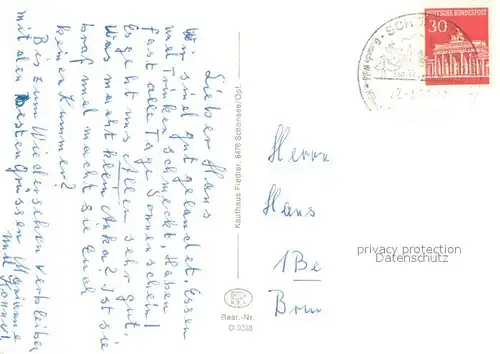 Lieber Hans
Wir sind gut gelandet. Essen
und Trinken schmeckt, haben
fast alle Tage Sonnenschein!
Es geht uns Allen sehr gut.
Was macht klein Anka? Ist sie
brav und macht sie Euch
keinen Kummer?
Bis zum Wiedersehen verbleiben
mit den besten Grüssen
mit
Kaufhaus Fiedler, 8476 Schönsee/Opf.
Best.-Nr.
D 9238
DEUTSCHE BUNDESPOST
30
Herrn
Hans
1 Be
privacy protection
Datenschutz